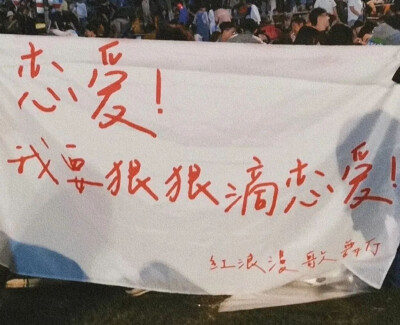 恋爱!
我要狠狠滴恋爱!
红浪漫歌舞厅